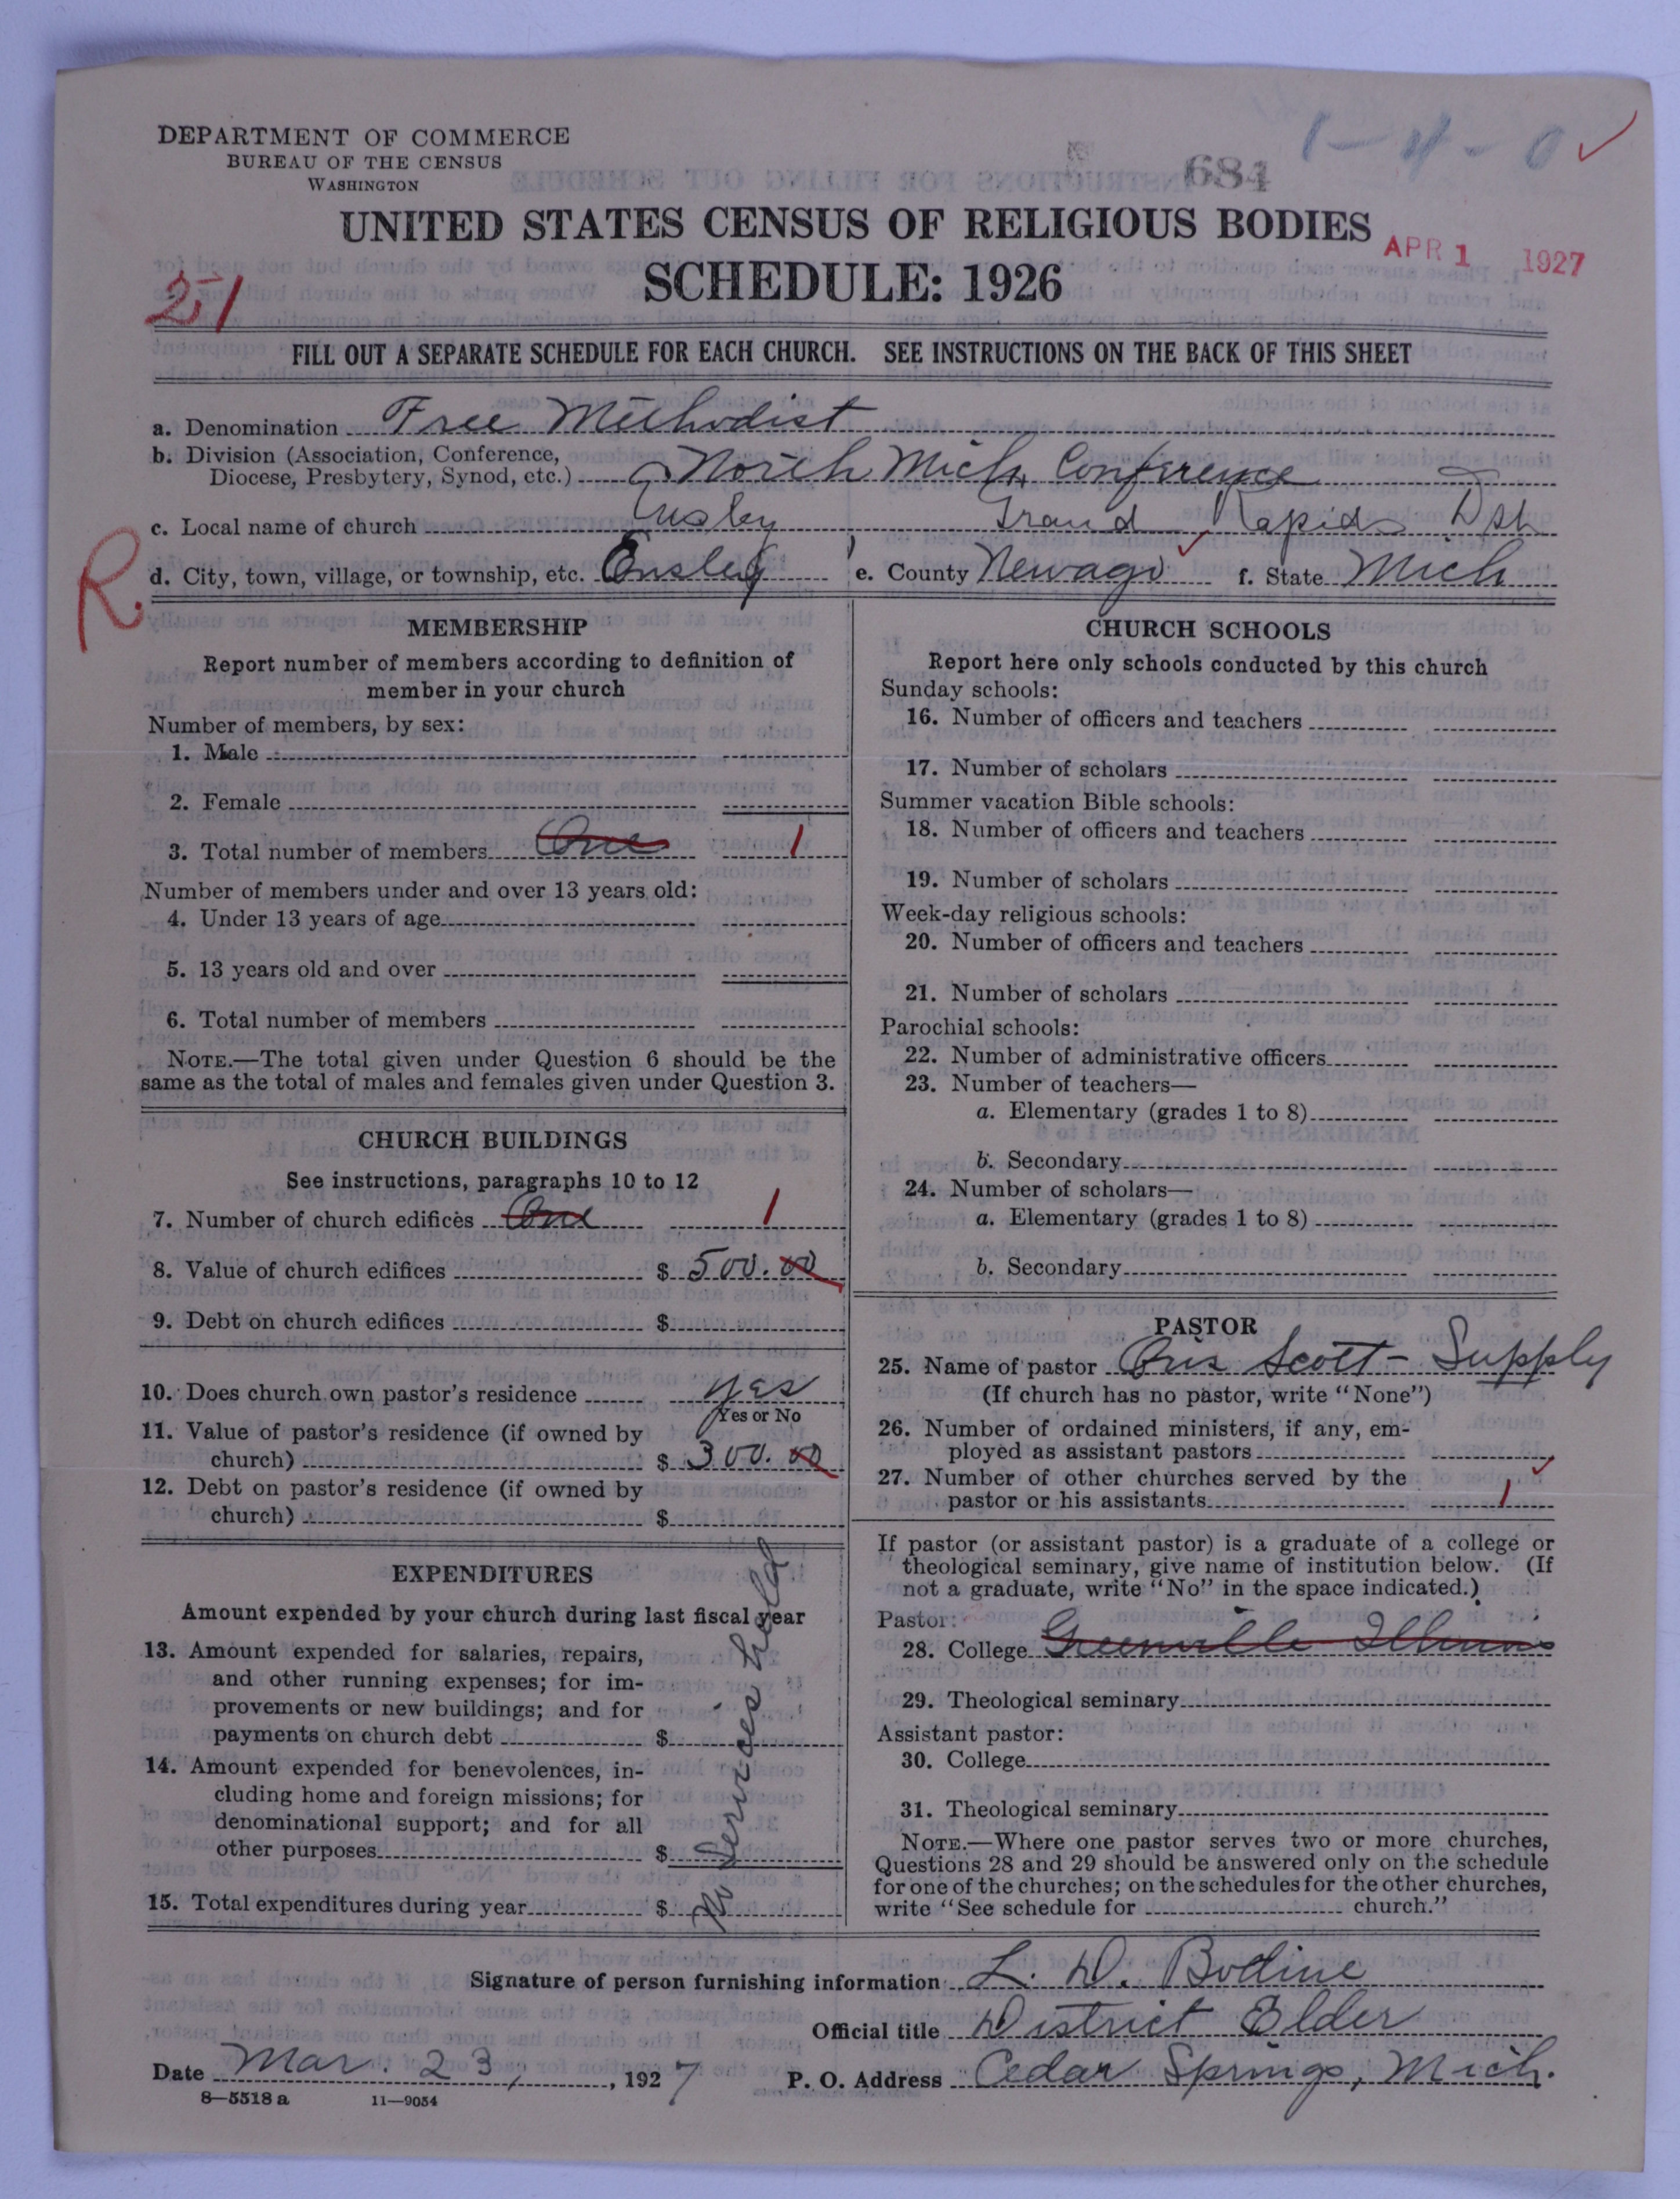 DEPARTMENT OF COMMERCE
BUREAU OF THE CENSUS
WASHINGTON
1 - 4 - 0 ✓
684
UNITED STATES CENSUS OF RELIGIOUS BODIES
APR 1 1927
SCHEDULE: 1926
251
FILL OUT A SEPARATE SCHEDULE FOR EACH CHURCH. SEE INSTRUCTIONS ON THE BACK OF THIS SHEET
a. Denomination Free Methodist
b. Division (Association, Conference,
Diocese, Presbytery, Synod, etc.) North Mich Conference
c. Local name of church Ensley Grand Rapids Dst
R.
d. City, town, village, or township, etc. Ensley e. County Newago f. State Mich
MEMBERSHIP
Report number of members according to definition of
member in your church
Number of members, by sex:
1. Male
2. Female
3. Total number of members One 1
Number of members under and over 13 years old:
4. Under 13 years of age
5. 13 years old and over
6. Total number of members
NOTE.—The total given under Question 6 should be the
same as the total of males and females given under Question 3.
CHURCH BUILDINGS
See instructions, paragraphs 10 to 12
7. Number of church edifices One 1
8. Value of church edifices $ 500.00
9. Debt on church edifices $
10. Does church own pastor's residence yes
Yes or No
11. Value of pastor's residence (if owned by
church) $ 300.00
12. Debt on pastor's residence (if owned by
church) $
EXPENDITURES
Amount expended by your church during last fiscal year
13. Amount expended for salaries, repairs,
and other running expenses; for im-
provements or new buildings; and for
payments on church debt $
14. Amount expended for benevolences, in-
cluding home and foreign missions; for
denominational support; and for all
other purposes $
15. Total expenditures during year $
No Services held
CHURCH SCHOOLS
Report here only schools conducted by this church
Sunday schools:
16. Number of officers and teachers
17. Number of scholars
Summer vacation Bible schools:
18. Number of officers and teachers
19. Number of scholars
Week-day religious schools:
20. Number of officers and teachers
21. Number of scholars
Parochial schools:
22. Number of administrative officers
23. Number of teachers—
a. Elementary (grades 1 to 8)
b. Secondary
24. Number of scholars—
a. Elementary (grades 1 to 8)
b. Secondary
PASTOR
25. Name of pastor Oris Scott - Supply
(If church has no pastor, write "None")
26. Number of ordained ministers, if any, em-
ployed as assistant pastors
27. Number of other churches served by the
pastor or his assistants 1
If pastor (or assistant pastor) is a graduate of a college or
theological seminary, give name of institution below. (If
not a graduate, write "No" in the space indicated.)
Pastor:
28. College Greenville Illinois
29. Theological seminary
Assistant pastor:
30. College
31. Theological seminary
NOTE.—Where one pastor serves two or more churches,
Questions 28 and 29 should be answered only on the schedule
for one of the churches; on the schedules for the other churches,
write "See schedule for church."
Signature of person furnishing information L. D. Bodine
Official title District Elder
Date Mar. 23, 1927 P. O. Address Cedar Springs, Mich.
8—5518 a 11—9054